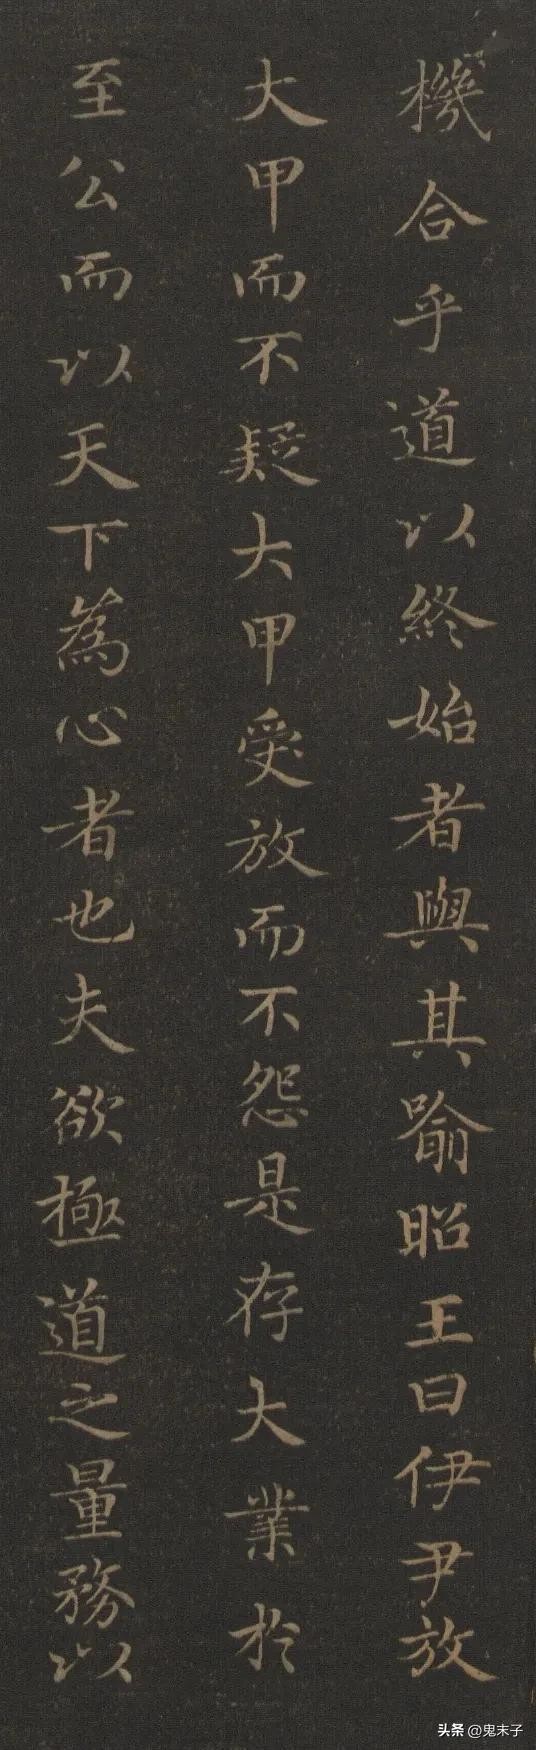 機合乎道以終始者與其喻昭王曰伊尹放
大甲而不疑大甲受放而不怨是存大業於
至公而以天下為心者也夫欲極道之量務以
头条 @鬼末子